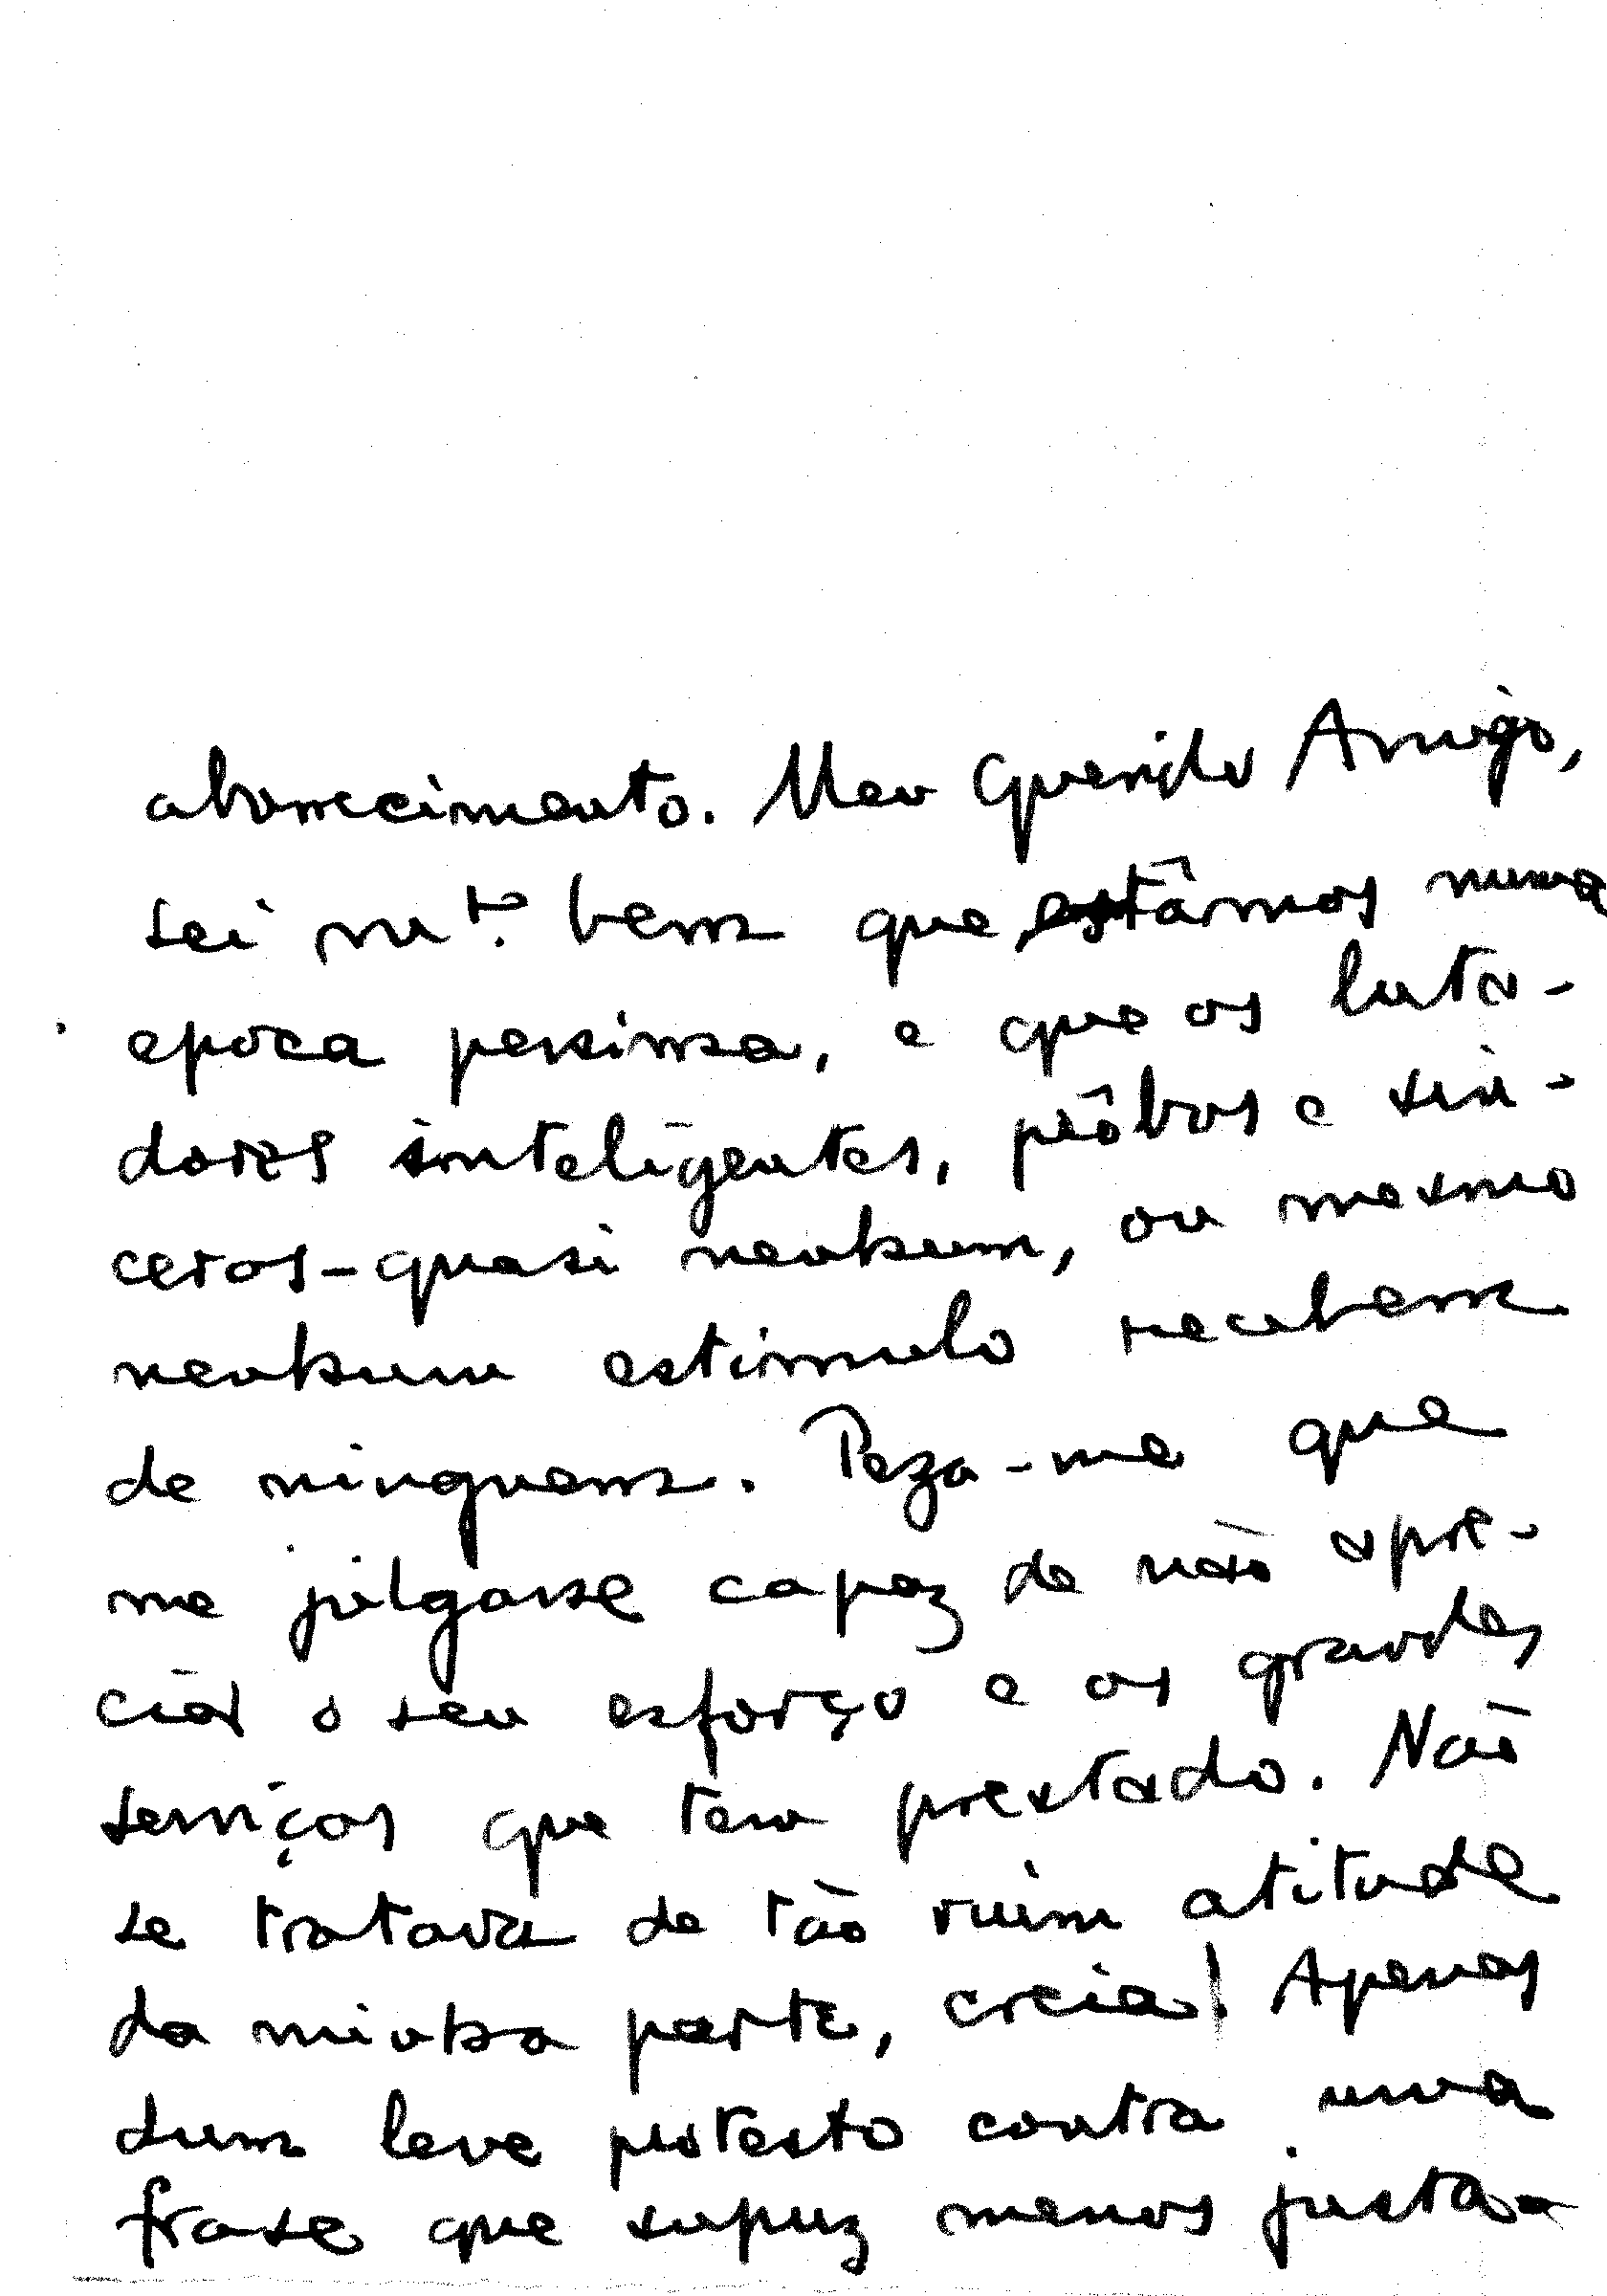 aborrecimento. Meu Querido Amigo,
sei mto. bem que estâmos numa
epoca pessima, e que os luta-
dores inteligentes, próbos e sin-
ceros - quasi nenhum, ou mesmo
nenhum estimulo recebem
de ninguem. Peza-me que
me julgasse capaz de não apre-
ciar o seu esforço e os grandes
serviços que tem prestado. Não
se tratava de tão ruim atitude
da minha parte, creia! Apenas
dum leve protesto contra uma
frase que supuz menos justa-